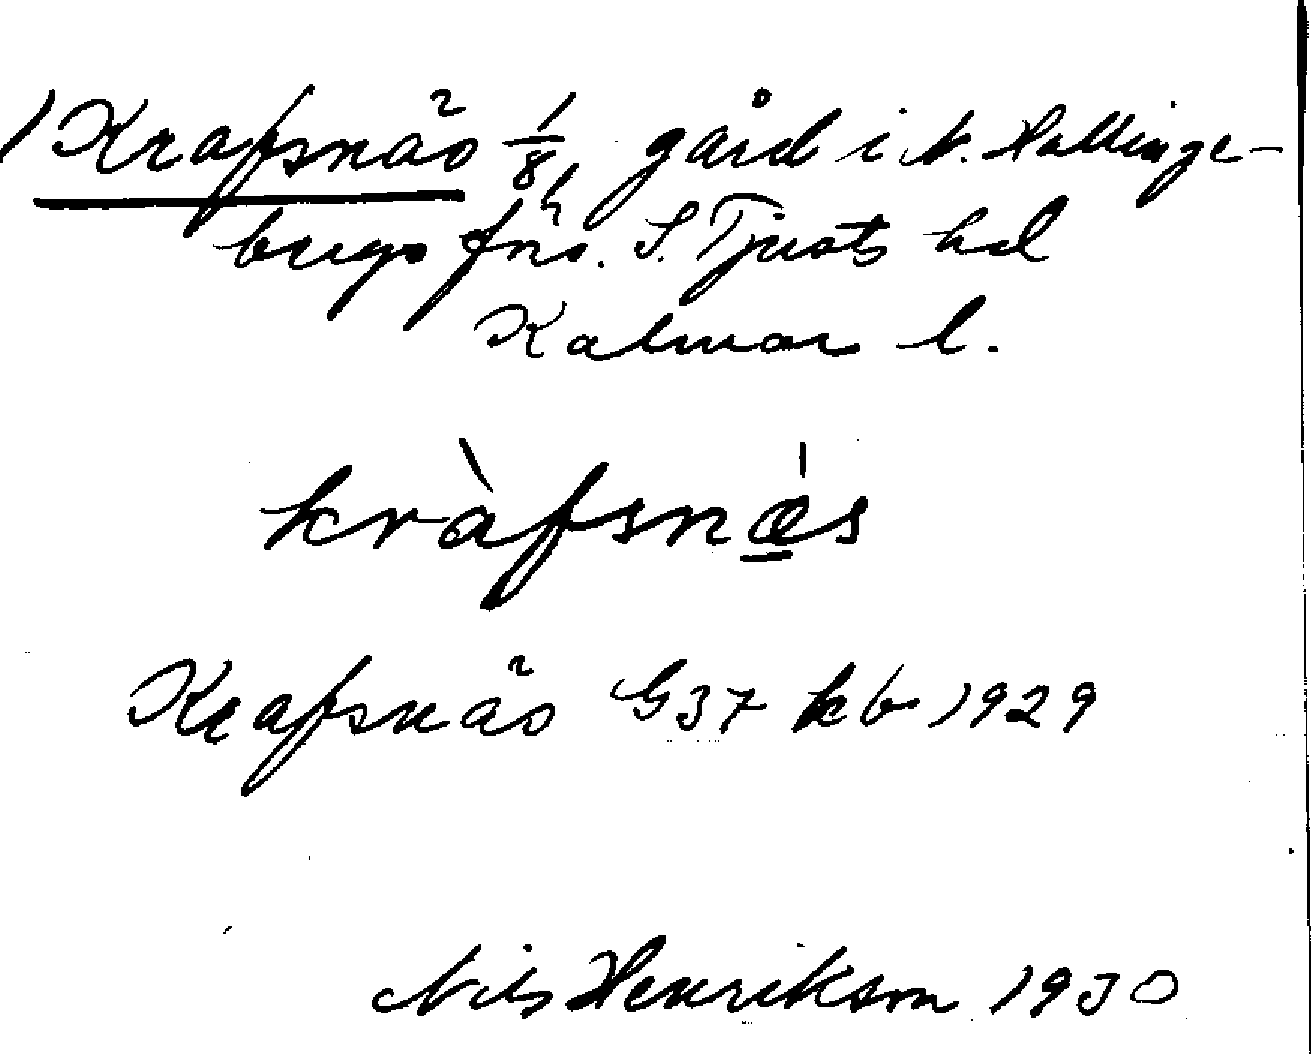 1) Krafsnäs 1/8 h gård i V. Hallinge-
bergs fns. S. Tjusts hd
Kalmar l.
kràfsnæ̱s
Krafsnäs G37 kb 1929
Nils Henrikson 1930